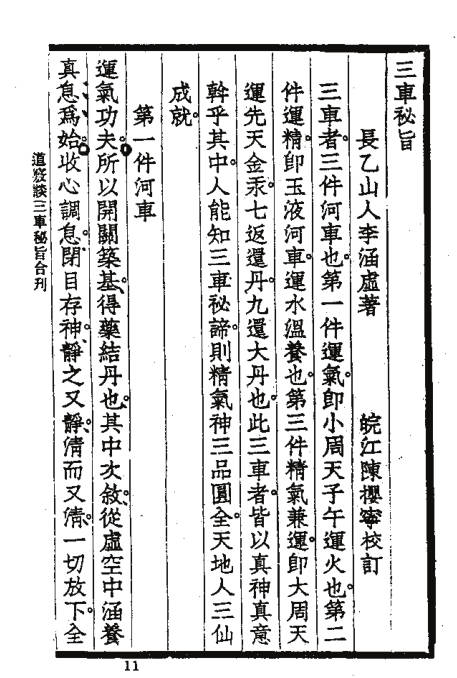 三車秘旨
長乙山人李涵虛著　皖江陳攖寧校訂
三車者。三件河車也。第一件運氣。即小周天子午運火也。第二
件運精。即玉液河車。運水溫養也。第三件精氣兼運。即大周天
運先天金汞。七返還丹。九還大丹也。此三車者。皆以真神真意
斡乎其中。人能知三車秘諦。則精氣神三品圓全。天地人三仙
成就。
第一件河車
運氣功夫。所以開關築基。得藥結丹也。其中次敘。從虛空中涵養
真息爲始。收心調息。閉目存神。靜之又靜。清而又清。一切放下。全
道竅談三車秘旨合刊
11